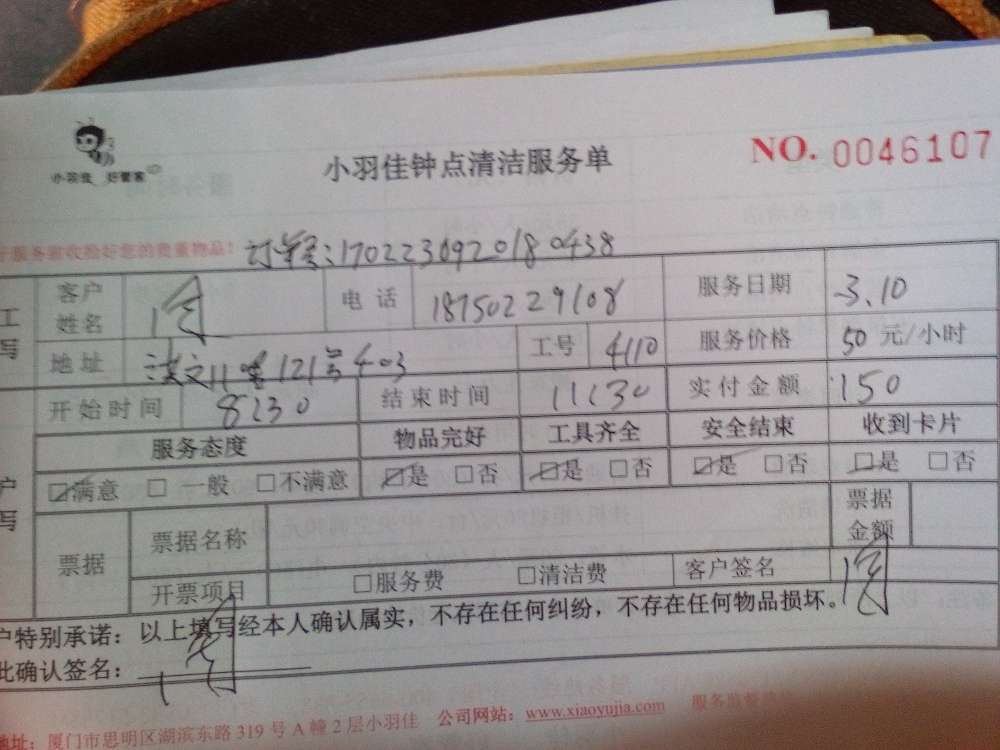 小羽佳 好管家
小羽佳钟点清洁服务单
NO. 0046107
服务前收捡好您的贵重物品!
订单号:170223092018 0438
客户姓名
电话 18750229108
服务日期 3.10
地址 121号403
工号 4110
服务价格 50 元/小时
开始时间 8:30
结束时间 11:30
实付金额 150
服务态度 物品完好 工具齐全 安全结束 收到卡片
☑满意 □ 一般 □不满意 ☑是 □否 ☑是 □否 ☑是 □否 ☑是 □否
票据 票据名称 票据金额
开票项目 □服务费 □清洁费 客户签名
户特别承诺:以上填写经本人确认属实,不存在任何纠纷,不存在任何物品损坏。
此确认签名:
地址:厦门市思明区湖滨东路 319 号 A 幢 2 层小羽佳 公司网站:www.xiaoyujia.com 服务监督